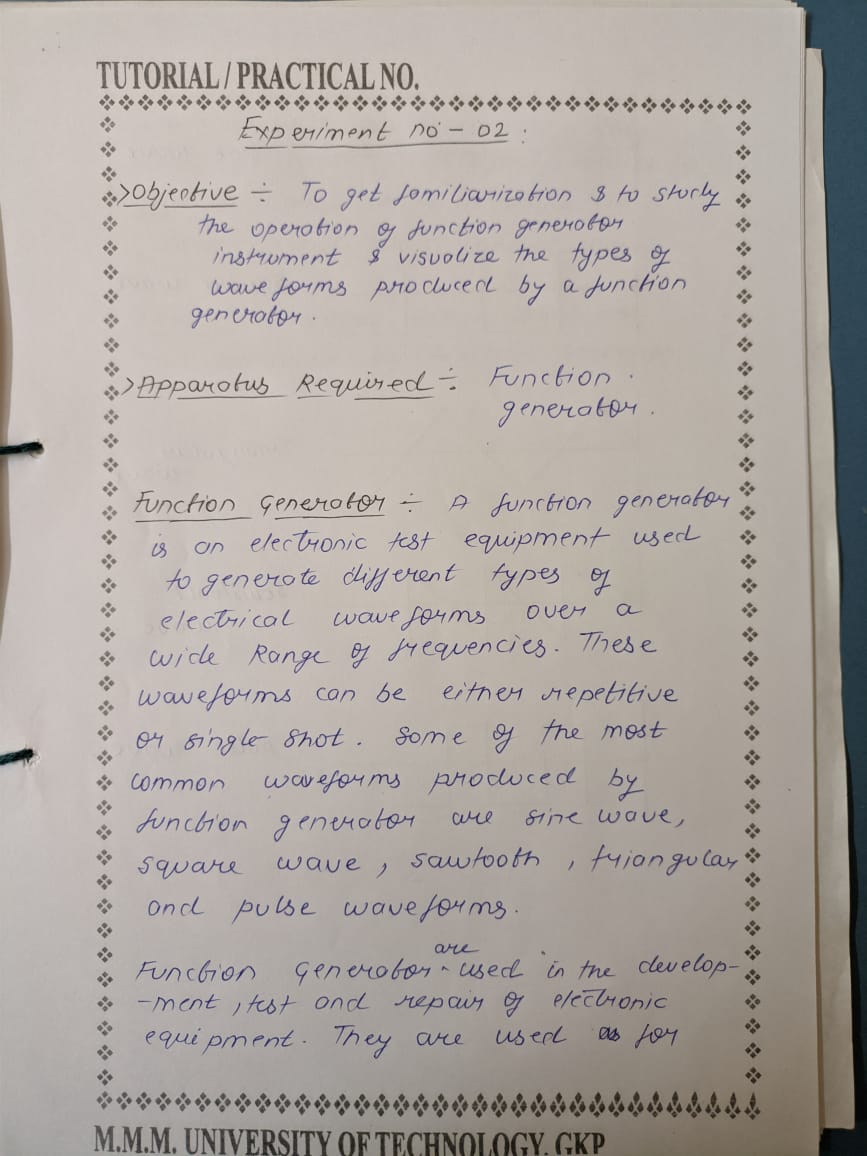 TUTORIAL / PRACTICAL NO.
Experiment no - 02 :
>Objective ÷ To get familiarization & to study
the operation of function generator
instrument & visualize the types of
wave forms produced by a function
generator.
>Apparatus Required ÷ Function
generator.
Function Generator ÷ A function generator
is an electronic test equipment used
to generate different types of
electrical wave forms over a
wide Range of frequencies. These
waveforms can be either repetitive
or single shot. Some of the most
common waveforms produced by
function generator are sine wave,
square wave, sawtooth, triangular
and pulse wave forms.
are
Function Generator ^ used in the develop-
-ment, test and repair of electronic
equipment. They are used as for
M.M.M. UNIVERSITY OF TECHNOLOGY, GKP